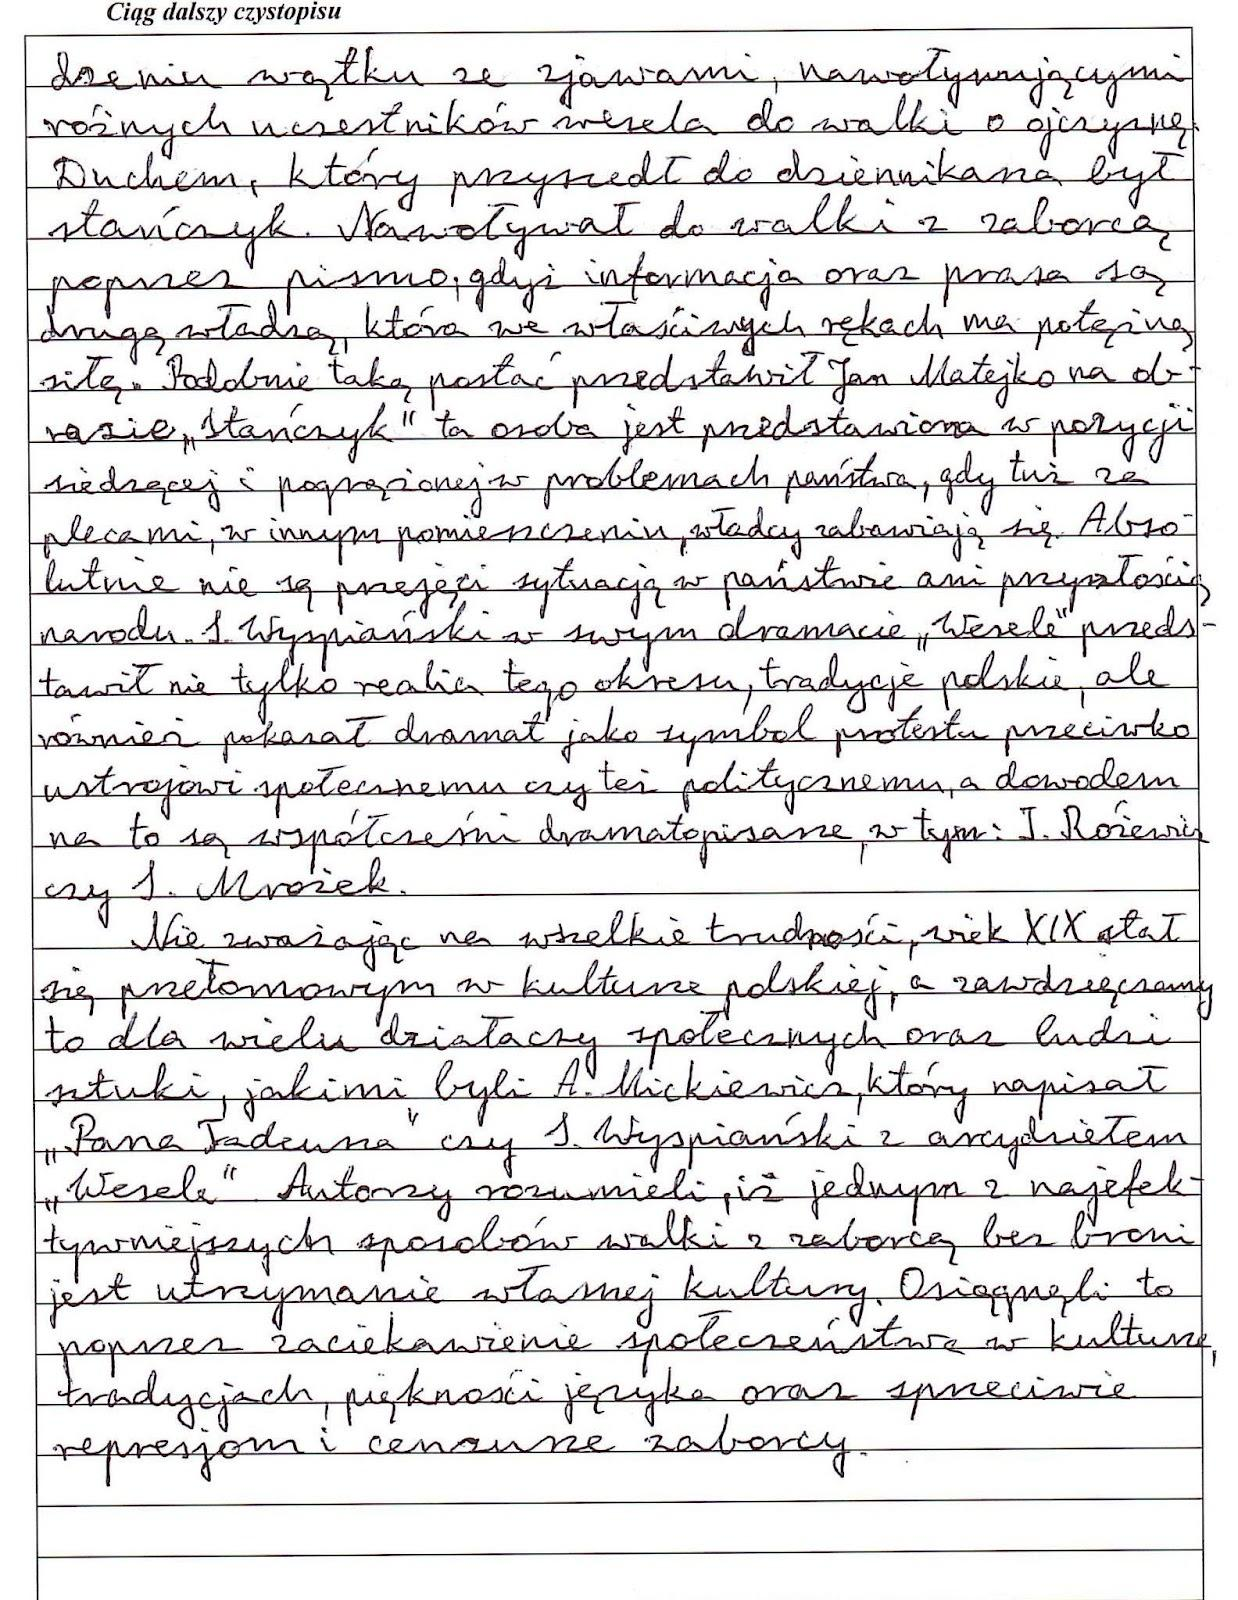 Ciąg dalszy czystopisu
dzeniu wątku ze zjawami, nawołymującymi
różnych uczestników wesela do walki o ojczyznę.
Duchem, który przyszedł do dziennikarza był
stańczyk. Nawoływał do walki z zaborcą
poprzez pismo, gdyż informacja oraz prasa są
drugą władzą, która we właściwych rękach ma potężną
siłę. Podobnie taką postać przedstawił Jan Matejko na ob-
razie „Stańczyk" ta osoba jest przedstawiona w pozycji
siedzącej i pogrążonej w problemach państwa, gdy tuż za
plecami, w innym pomieszczeniu, władcy zabawiają się. Abso-
lutnie nie są przejęci sytuacją w państwie ani przyszłością
narodu. S. Wyspiański w swym dramacie „Wesele" przeds-
tawił nie tylko realia tego okresu, tradycje polskie, ale
również pokazał dramat jako symbol protestu przeciwko
ustrojowi społecznemu czy też politycznemu, a dowodem
na to są współcześni dramatopisarze, w tym: T. Różewicz
czy S. Mrożek.
Nie zważając na wszelkie trudności, wiek XIX stał
się przełomowym w kulturze polskiej, a zawdzięczamy
to dla wielu działaczy społecznych oraz ludzi
sztuki, jakimi byli A. Mickiewicz, który napisał
„Pana Tadeusza" czy S. Wyspiański z arcydziełem
„Wesele". Autorzy rozumieli, iż jednym z najefek-
tywniejszych sposobów walki z zaborcą bez broni
jest utrzymanie własnej kultury. Osiągnęli to
poprzez zaciekawienie społeczeństwa w kulturze,
tradycjach, piękności języka oraz sprzeciwie
represjom i cenzurze zaborcy.